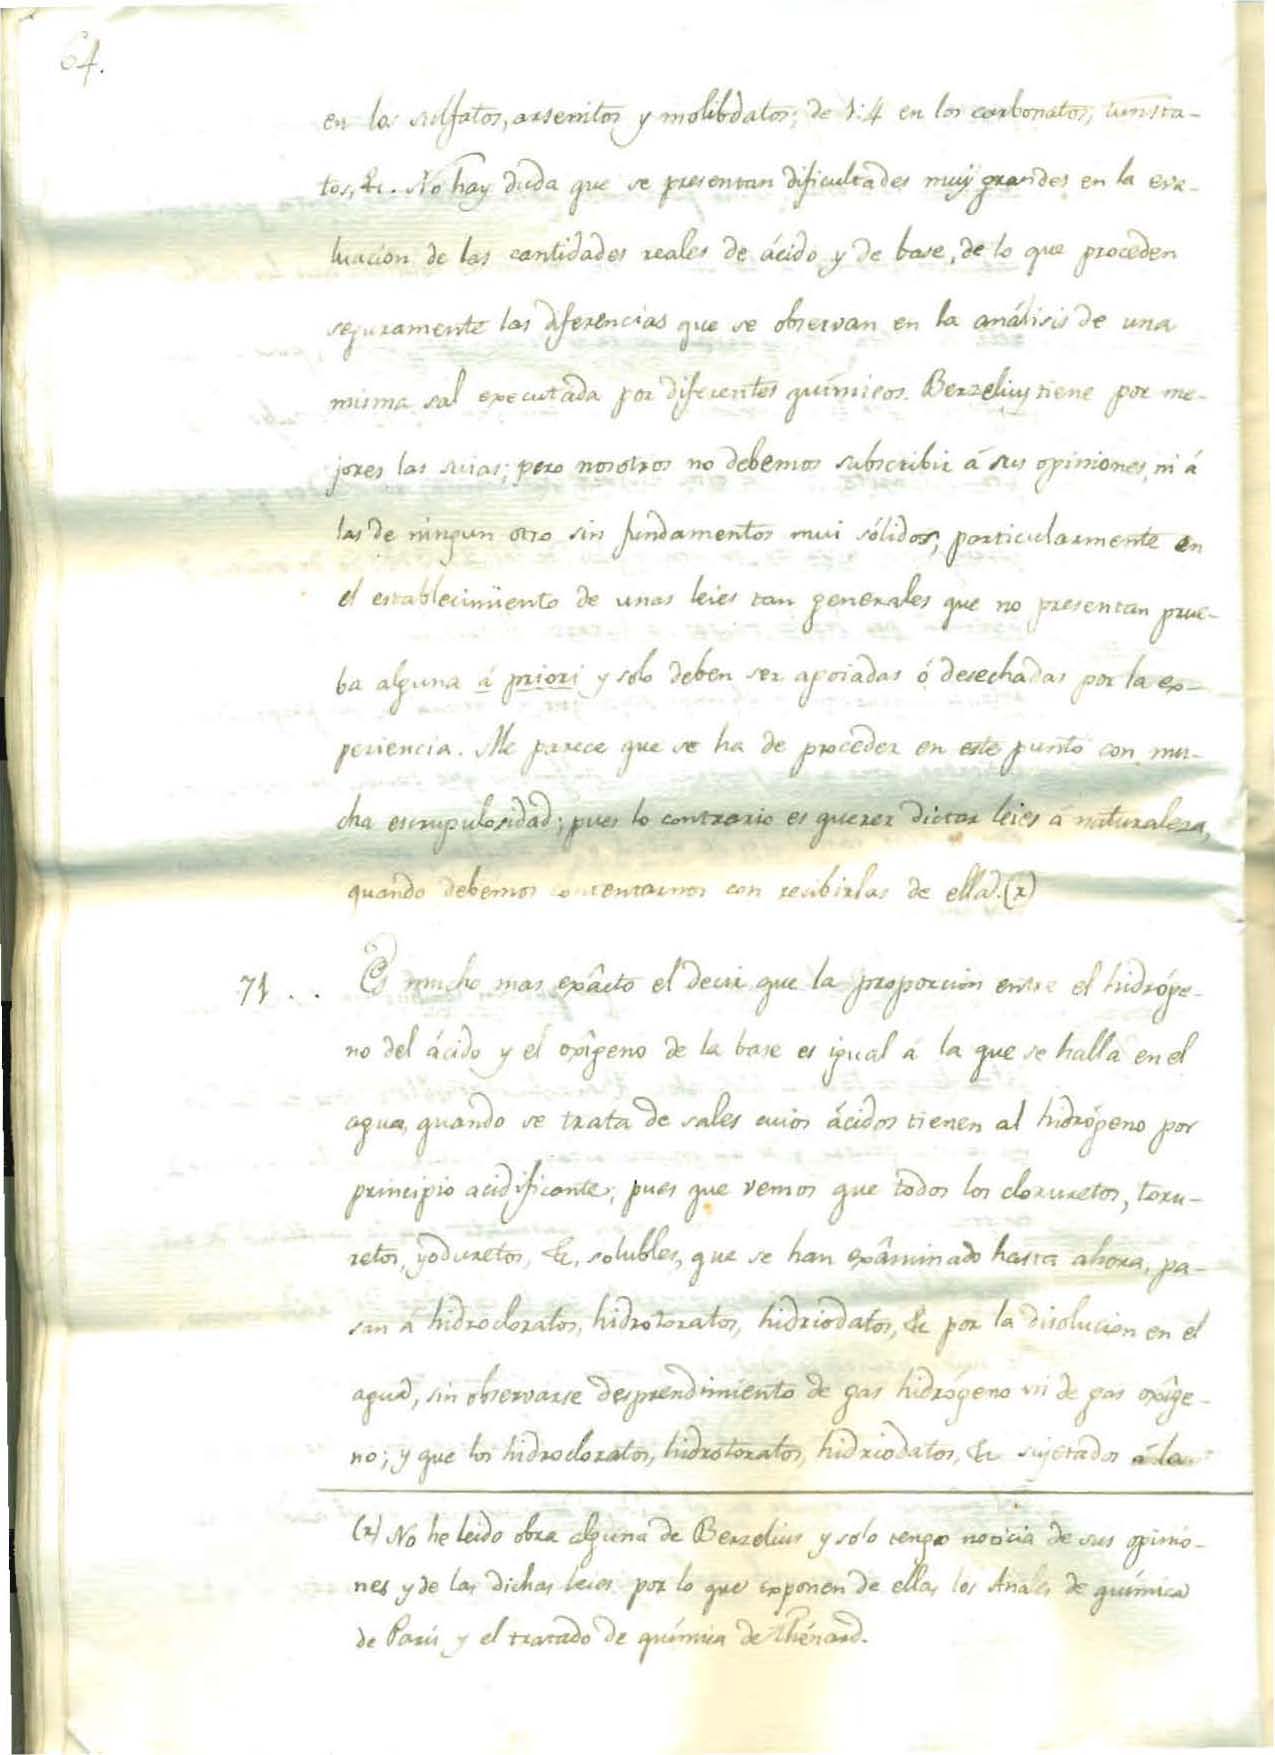 64.
en los sulfatos, arsenitos y molibdatos; de 1:4 en los carbonatos, tunsta-
tos, &c. No hay duda que se presentan dificultades muy grandes en la eva-
luacion de las cantidades reales de ácido y de base, de lo que proceden
seguramente las diferencias que se observan en la análisis de una
misma sal executada por diferentes químicos. Berzelius tiene por me-
jores las suias; pero nosotros no debemos subscribir á sus opiniones, ni á
las de ningun otro sin fundamentos mui sólidos; particularmente en
el establecimiento de unas leies tan generales que no presentan prue-
ba alguna á priori y solo deben ser apoiadas ó desechadas por la ex-
periencia. Me parece que se ha de proceder en este punto con mu-
cha escrupulosidad; pues lo contrario es querer dictar leies á naturaleza,
quando debemos contentarnos con recibirlas de ella. (x)
71 . . Es mucho mas exâcto el decir que la proporcion entre el hidróge-
no del ácido y el oxîgeno de la base es igual á la que se halla en el
agua, quando se trata de sales cuios ácidos tienen al hidrógeno por
principio acidificante; pues que vemos que todos los cloruretos, toru-
retos, yoduretos, &c, solubles, que se han exâminado hasta ahora, pa-
san á hidrocloratos, hidrotoratos, hidriodatos, &c por la disolucion en el
agua, sin observarse desprendimiento de gas hidrógeno ni de gas oxîge-
no; y que los hidrocloratos, hidrotoratos, hidriodatos, &c sujetados á la
(x) No he leido obra alguna de Berzelius y solo tengo noticia de sus opinio-
nes y de las dichas leies por lo que exponen de ellas los Anales de química
de Paris y el tratado de química de Thénard.